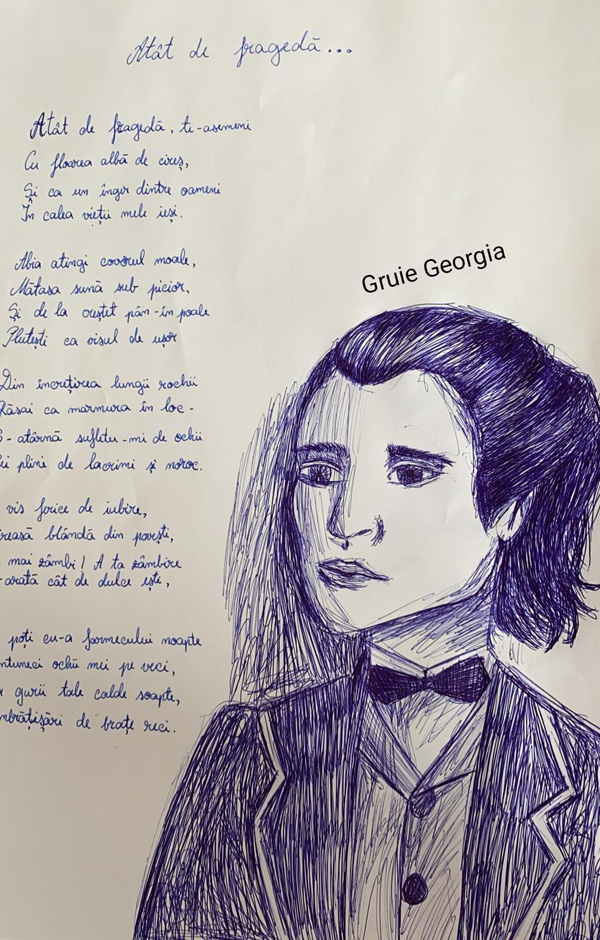 Atât de fragedă...
Atât de fragedă, te-asemeni
Cu floarea albă de cireș,
Și ca un înger dintre oameni
În calea vieții mele ieși.
Abia atingi covorul moale,
Mătasa sună sub picior,
Și de la creștet pân-in poale
Plutești ca visul de ușor
Din încrețirea lungii rochii
Răsai ca marmura în loc -
S-atârnă sufletu-mi de ochii
plini de lacrimi și noroc.
vis ferice de iubire,
blândă din povești,
mai zâmbi! A ta zâmbire
arată cât de dulce ește,
poți cu-a farmecului noapte
ochii mei pe veci,
gurii tale calde șoapte,
de brațe reci.
Gruie Georgia